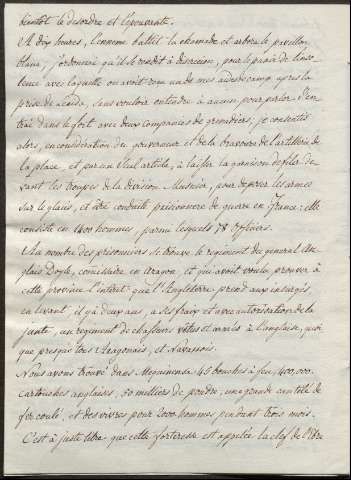 bientôt le désordre et l'épouvante.
A dix heures, l'ennemi battit la chamade et arbora le pavillon
blanc, j'ordonnai qu'il se rendit à discrétion, pour le punir de l'inso
lence avec laquelle on avoit reçu un de mes aides de camp, après la
prise de Lérida, sans vouloir entendre à aucun pourparler. J'en
trai dans le fort avec deux compagnies de grenadiers; je consentis
alors, en considération du gouverneur et de la bravoure de l'artillerie de
la place, et par un seul article, à laisser la garnison défiler de
vant les troupes de la division Musnier, pour déposer les armes
sur le glacis, et être conduite prisonnière de guerre en france: elle
consiste en 1400 hommes, parmi lesquels 78 officiers.
Au nombre des prisonniers se trouve le régiment du général An
glais Doyle, comissaire en aragon, et qui avoit voulu prouver à
cette province l'intérêt que l'Angleterre prend aux insurgés,
en levant, il y a deux ans, a ses frais et avec autorisation de la
junte, un régiment de chasseurs vêtus et armés à l'anglaise, quoi
que presque tous Aragonais, et Navarrois.
Nous avons trouvé dans Mequinensa 45 bouches à feu, 400,000
cartouches anglaises, 30 milliers de poudre, une grande quantité de
fer coulé, et des vivres pour 2000 hommes pendant trois mois.
C'est à juste titre que cette forteresse est appelée la clef de l'Ebre